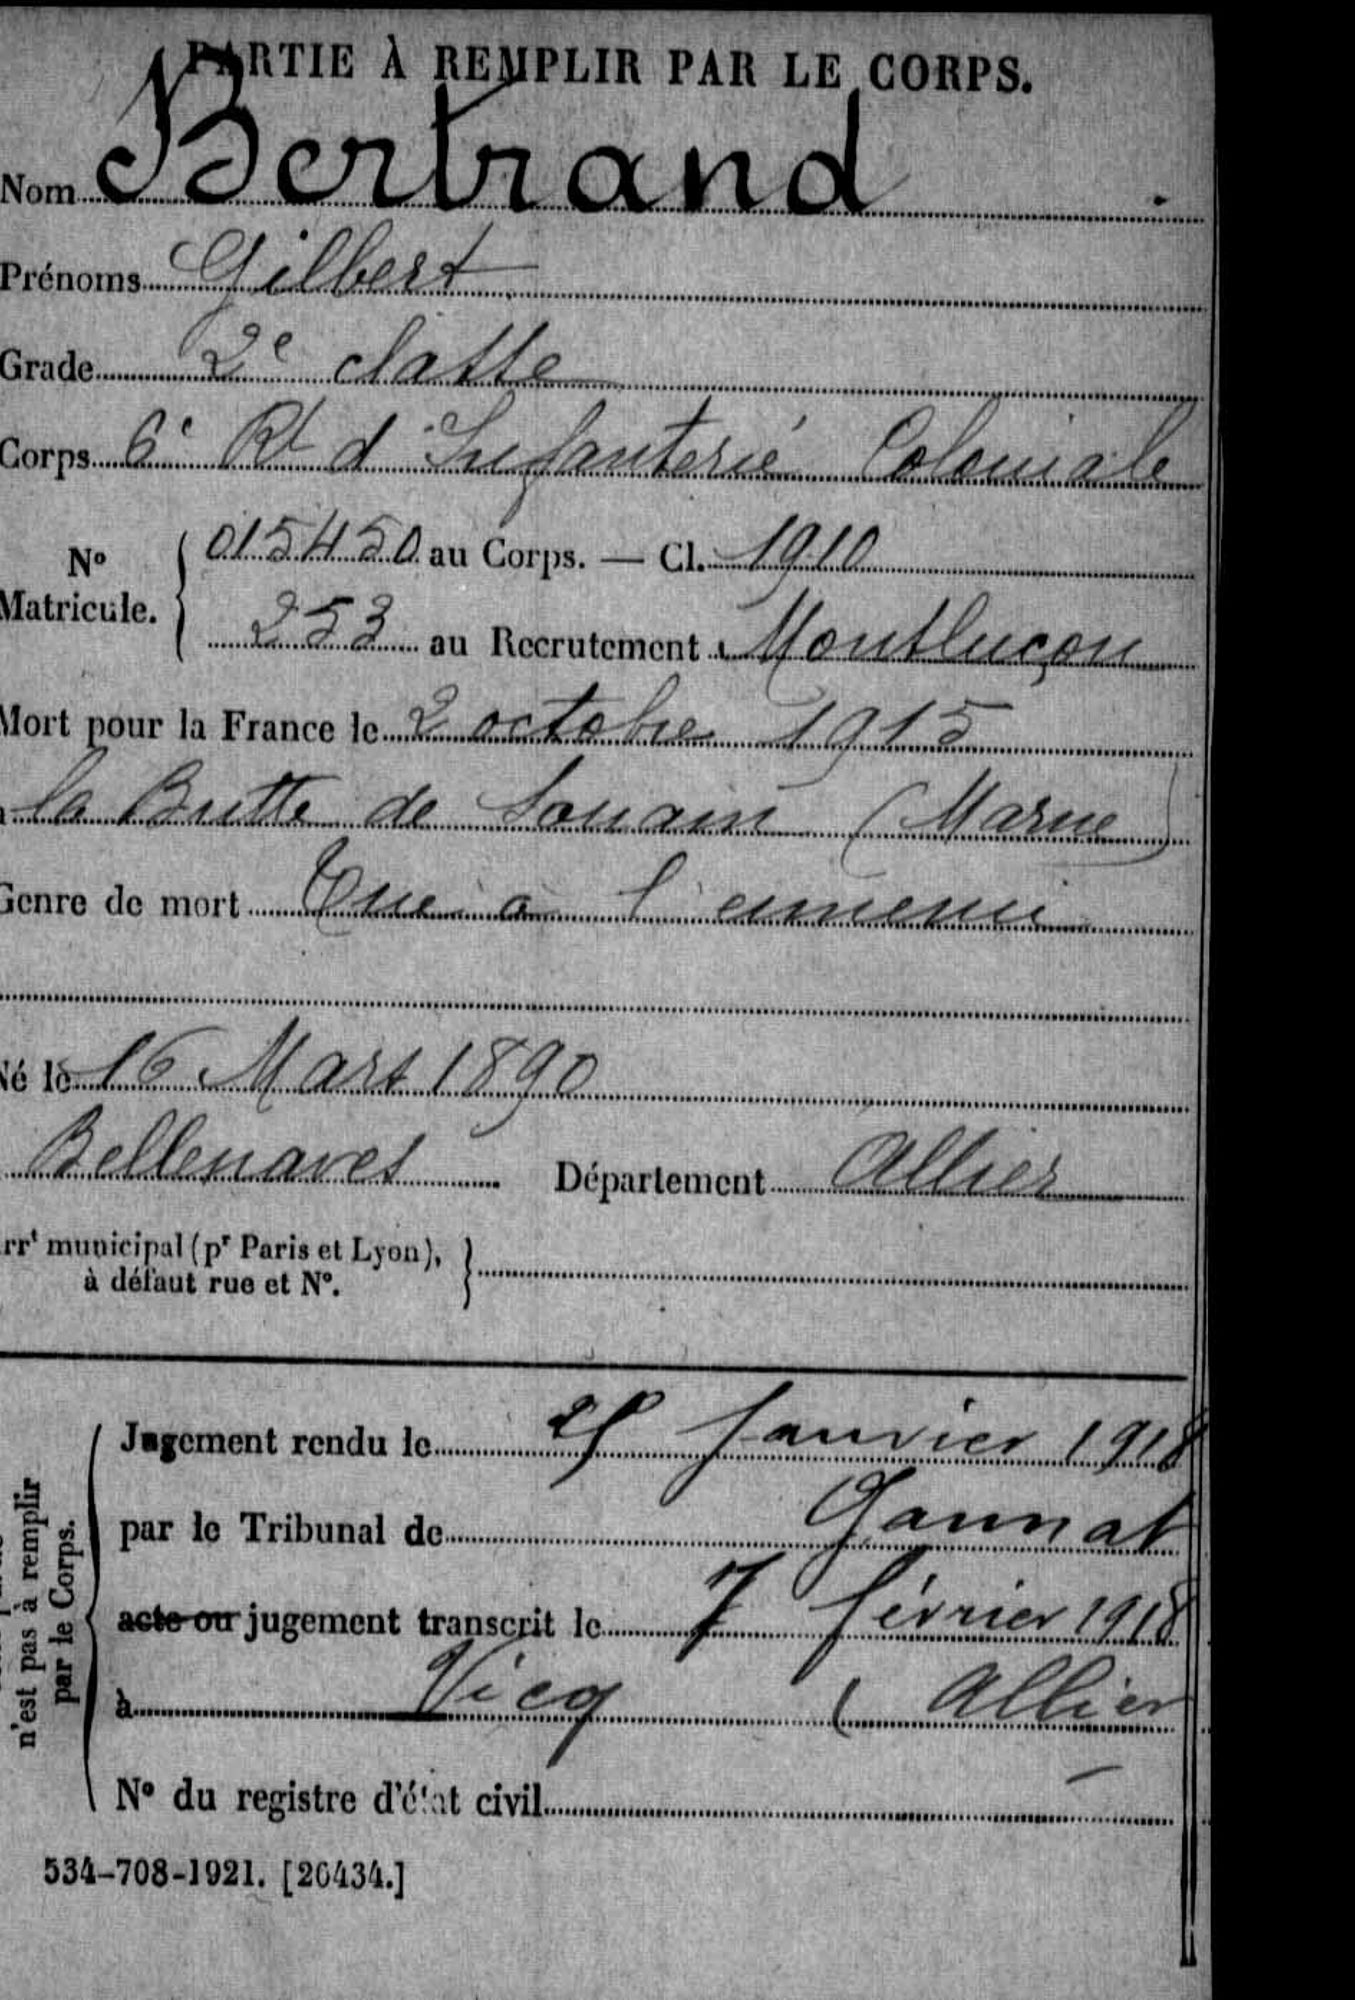 PARTIE À REMPLIR PAR LE CORPS.
Nom Bertrand
Prénoms Gilbert
Grade 2e classe
Corps 6e Rt d'Infanterie Coloniale
No Matricule. { 015450 au Corps. — Cl. 1910
253 au Recrutement Montluçon
Mort pour la France le 2 octobre 1915
la Butte de Souain (Marne)
Genre de mort Tué à l'ennemi
Né le 16 Mars 1890
Bellenaves Département Allier
rrt municipal (pr Paris et Lyon),
à défaut rue et No.
n'est pas à remplir
par le Corps.
Jugement rendu le 25 Janvier 1918
par le Tribunal de Gannat
acte ou jugement transcrit le 7 février 1918
à Vicq ( Allier
No du registre d'état civil
534-708-1921. [26434.]